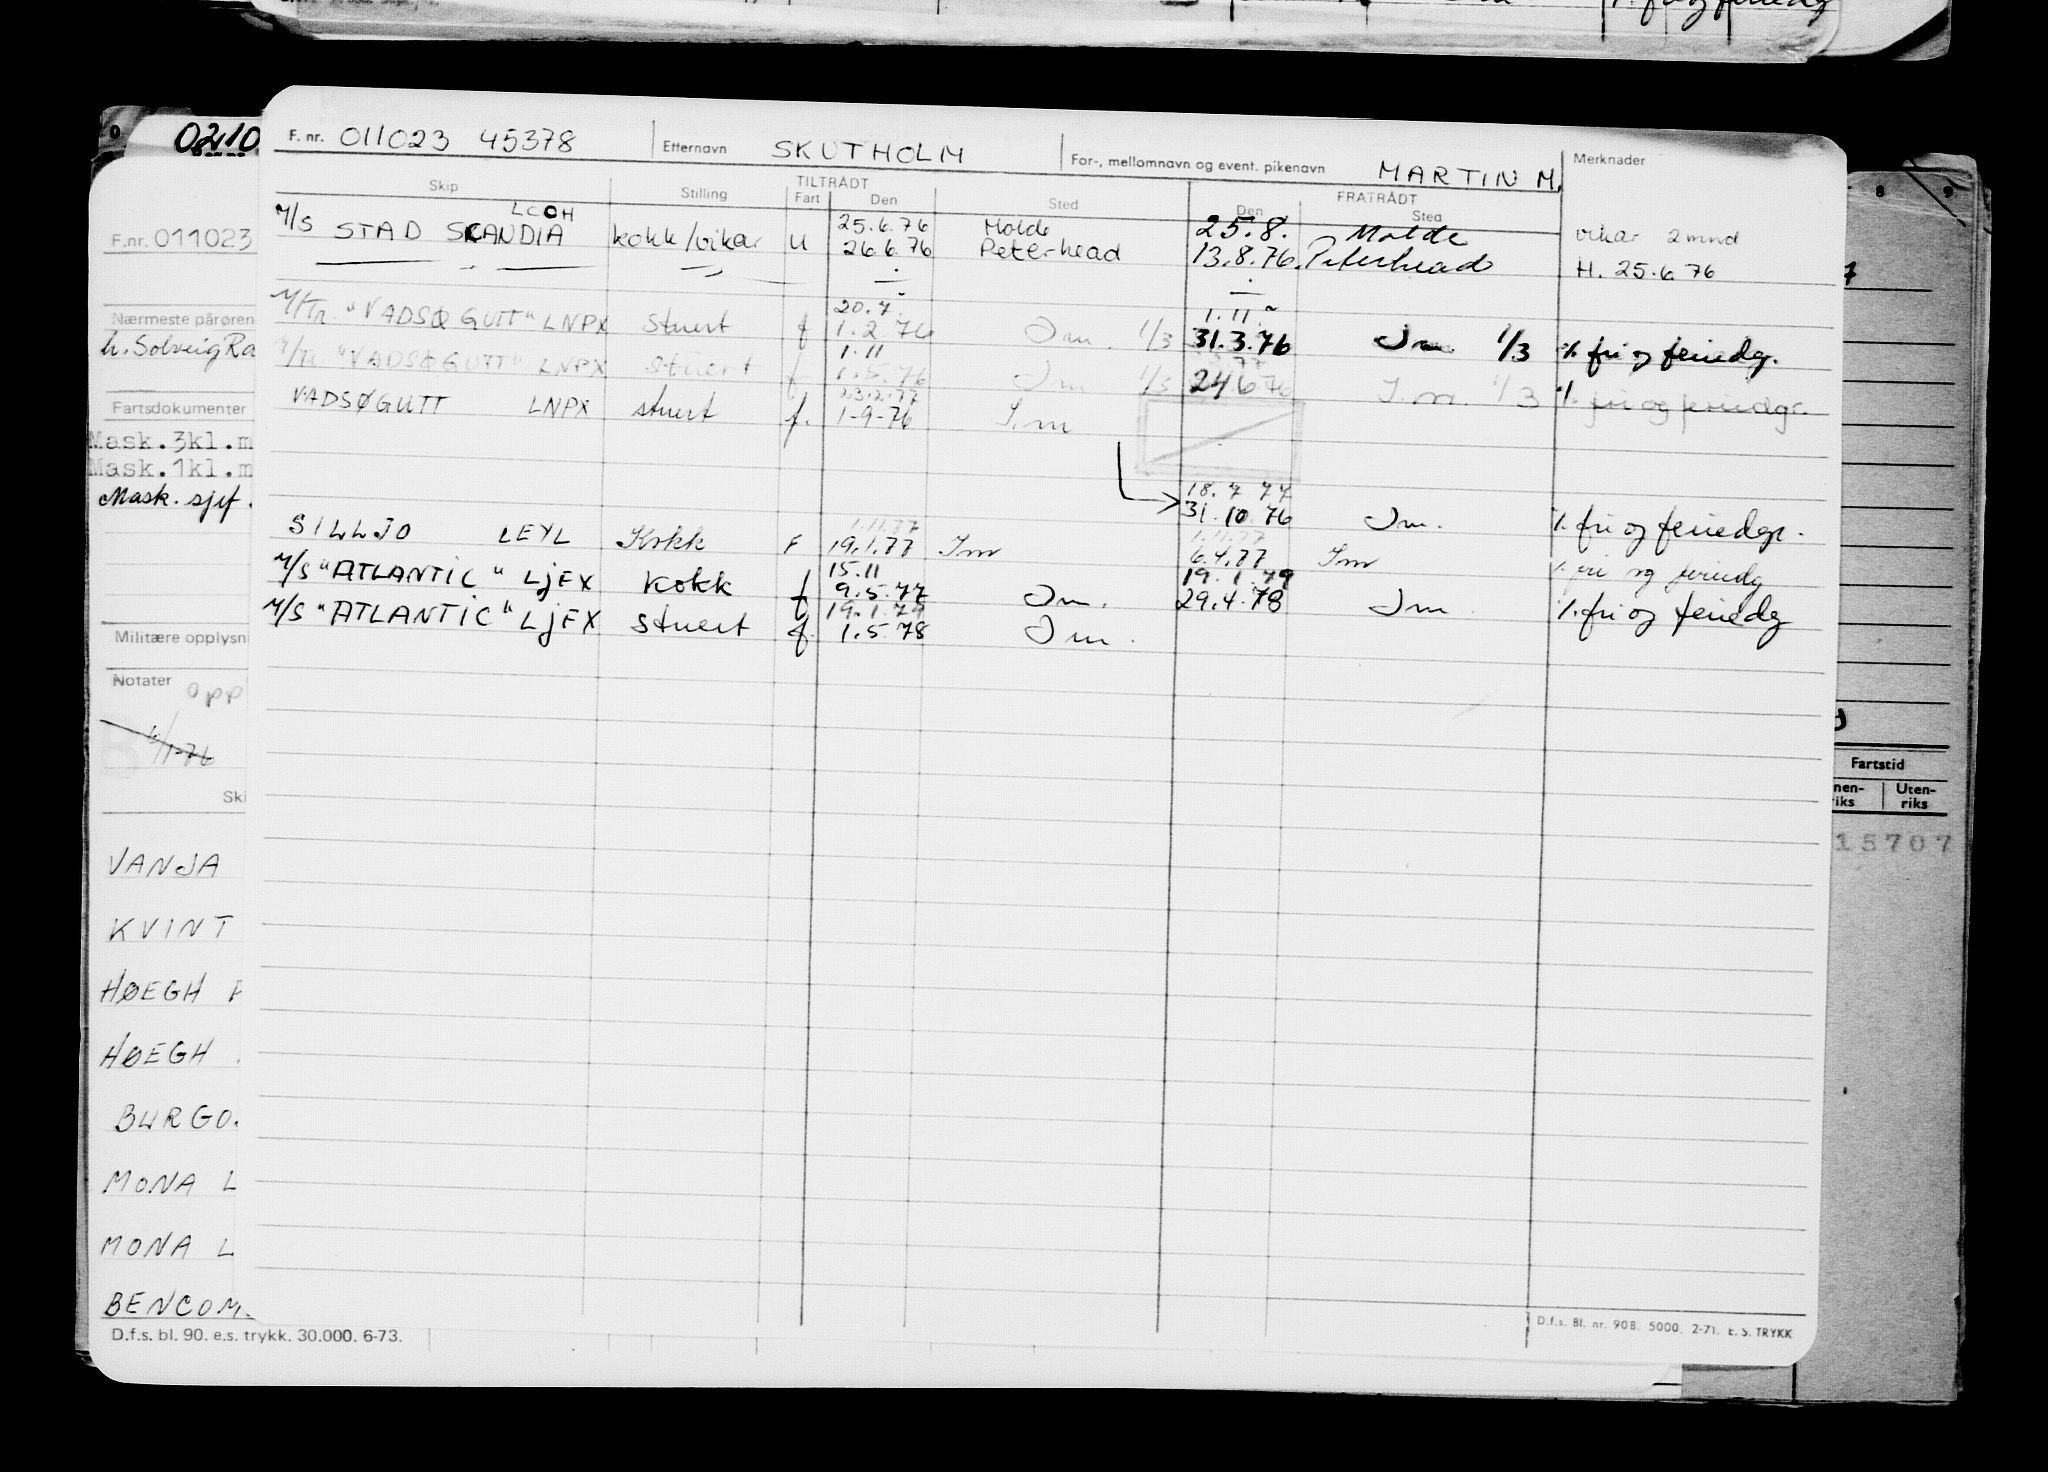 0210
F. nr. 011023 45378 Etternavn SKUTHOLM For-, mellomnavn og event. pikenavn MARTIN M. Merknader
Skip Stilling TILTRÅDT Fart Den Sted Den FRATRÅDT Sted
M/S STAD SCANDIA LCOH kokk/vikar U 25.6.76 Molde 25.8. Molde vikar 2 mnd
26.6.76 Peterhead 13.8.76. Peterhead H. 25.6.76
20.7. 1.11
M/Tr. "VADSØGUTT" LNPX Stuert f 1.2.76 Im. 1/3 31.3.76 Im. 1/3 % fri og feriedg.
1.11 77
M/Tr. "VADSØGUTT" LNPX Stuert f 1.5.76 Im 1/3 24.6.76 I.m. 1/3 % fri og feriedgr.
23.2.77
VADSØGUTT LNPX stuert f. 1-9-76 I.m
18.7.77
31.10.76 Im. % fri og feriedgr.
1.11.77 1.11.77
SILLJO LEYL Kokk F 19.1.77 Im 6.4.77 Im % fri og feriedg
15.11 19.1.79
M/S "ATLANTIC" LJEX Kokk f 9.5.77 Im. 29.4.78 Im % fri og feriedg
19.1.79
M/S "ATLANTIC" LJEX Stuert f. 1.5.78 Im.
D.f.s. Bl. nr. 90B. 5000. 2-71. E. S. TRYKK
F.nr. 011023
Nærmeste pårøren
h. Solveig Ra
Fartsdokumenter
Mask.3kl.m
Mask.1kl.m
Mask. sjef.
Militære opplysni
Notater opp
B 6/1-76
Ski
VANJA
KVINT
HØEGH
HØEGH
BURGO.
MONA L
MONA L
BENCOM.
D.f.s. bl. 90. e.s. trykk. 30.000. 6-73.
8 9
Fartstid
nen-
riks
Uten-
riks
15707